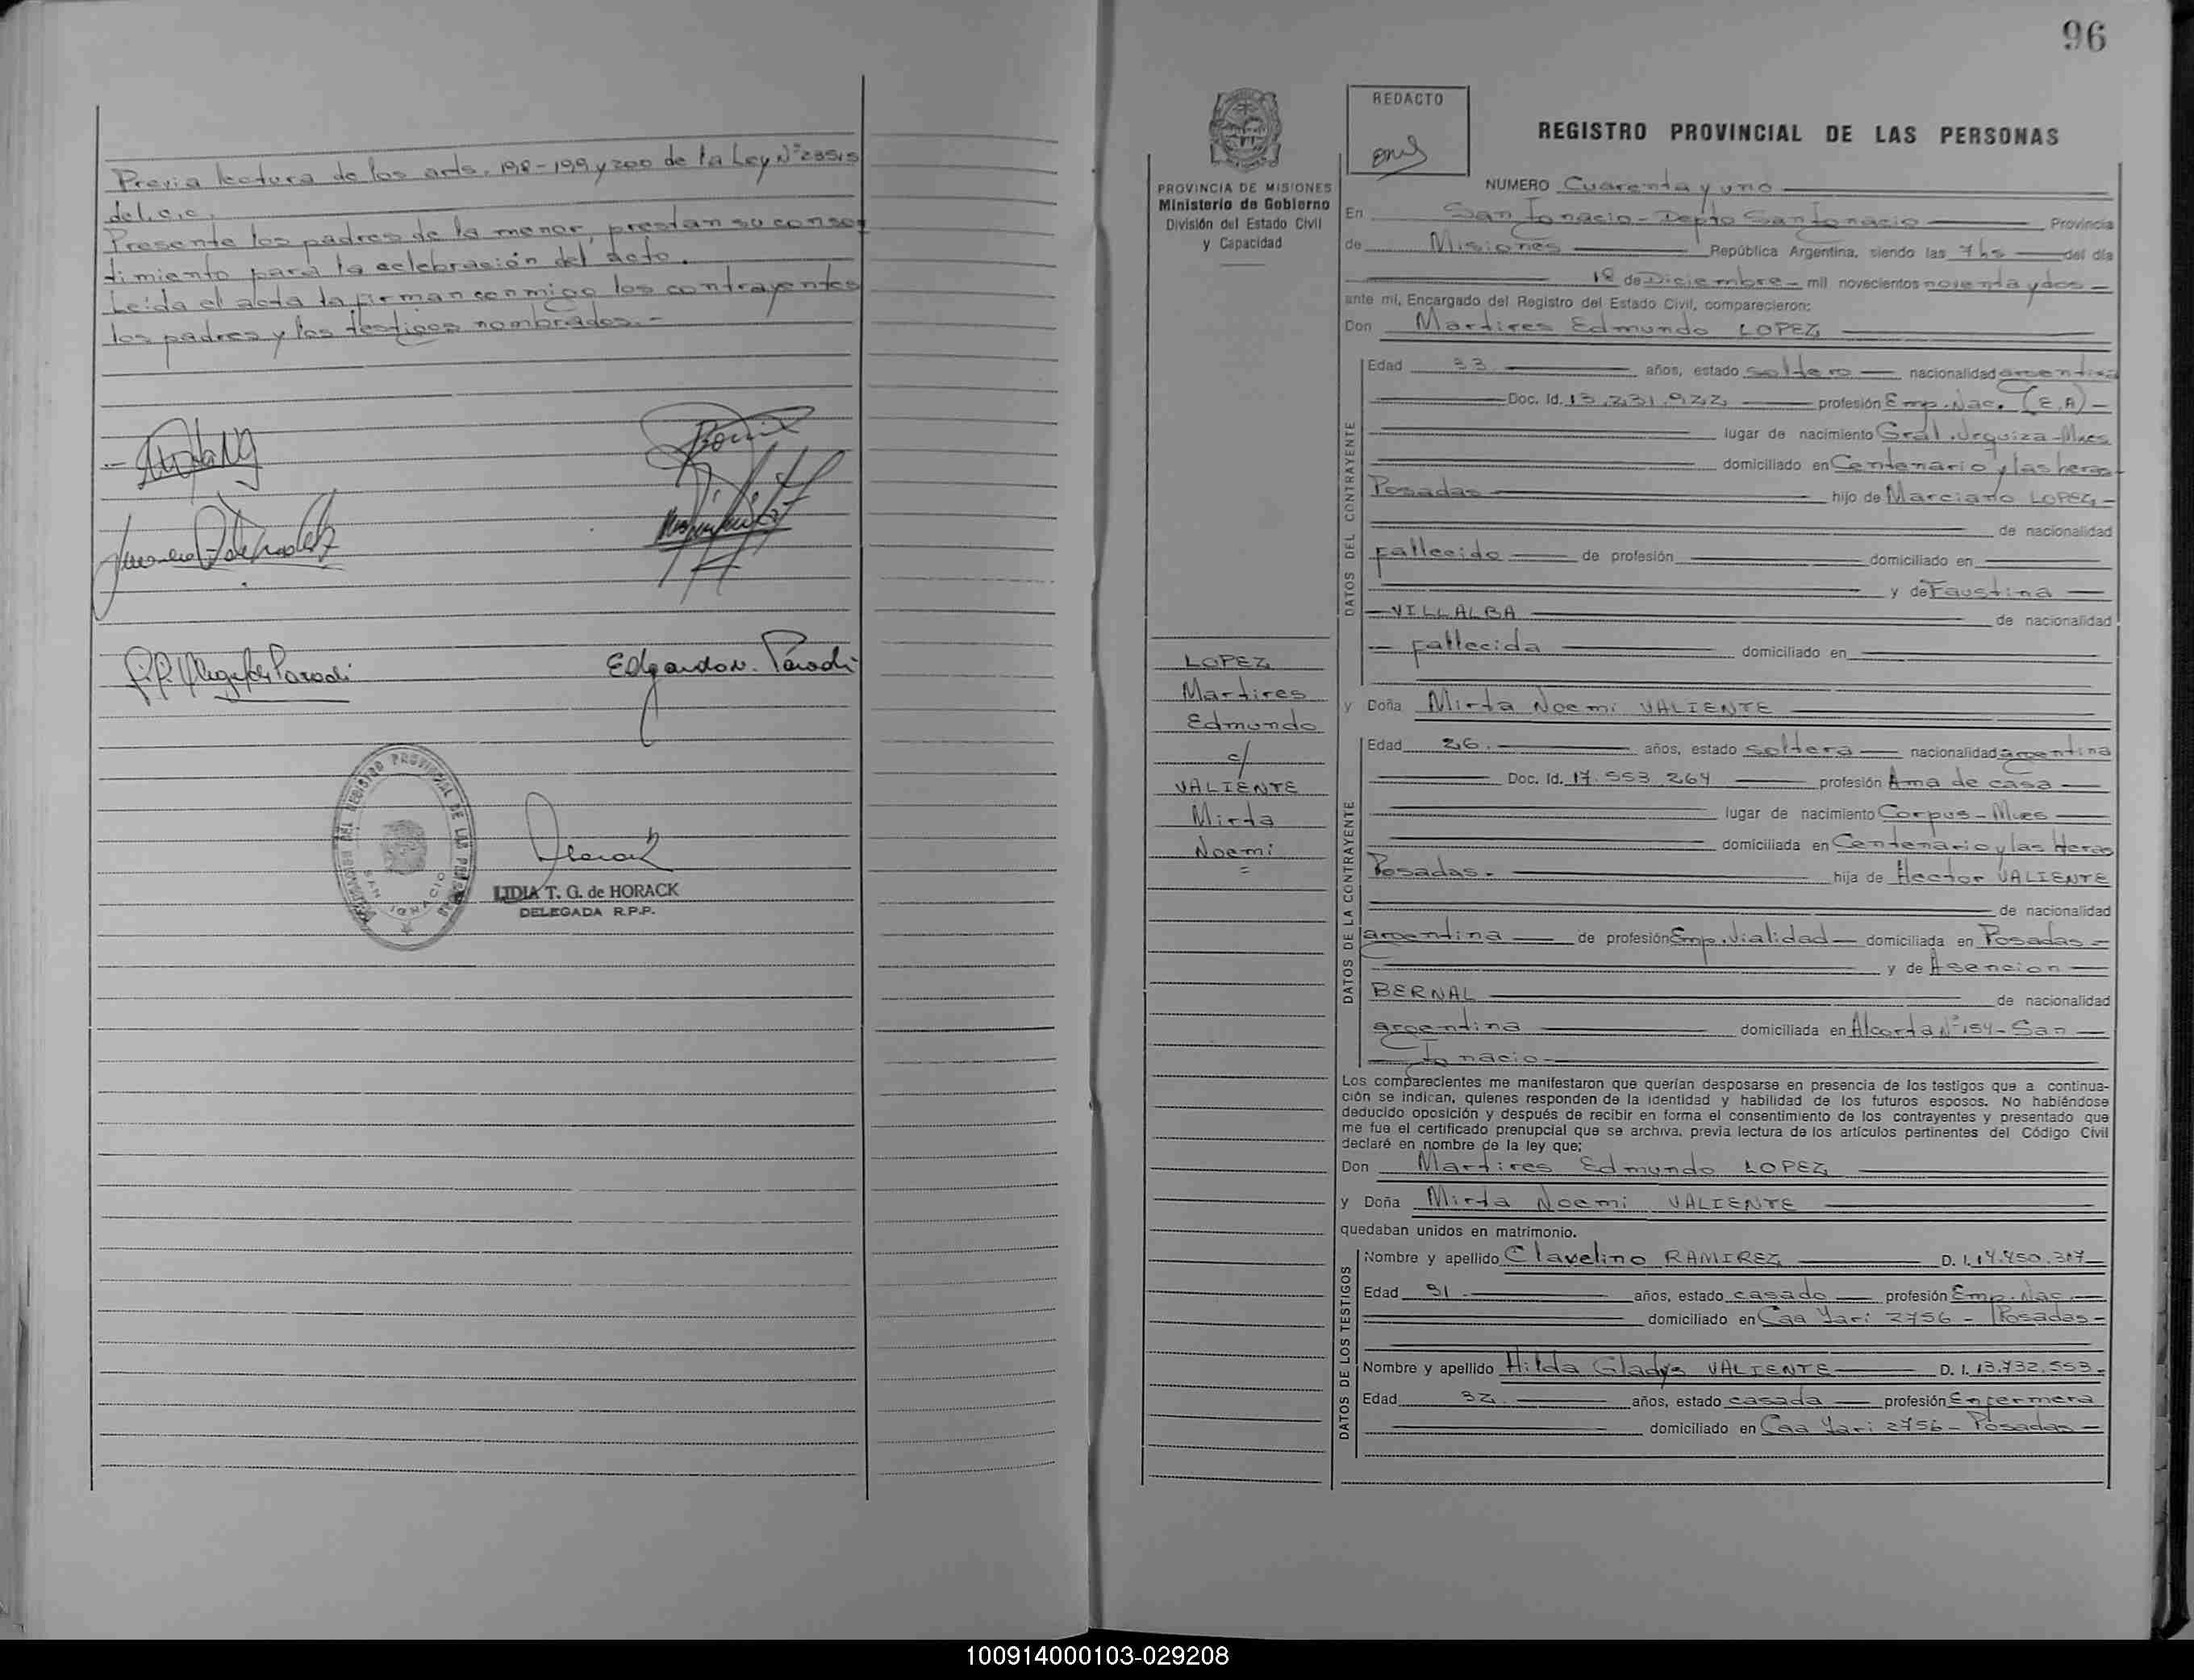 Previa lectura de los arts. 198-199 y 200 de la Ley Nº 23515
del c.c.
Presente los padres de la menor, prestan su consen
timiento para la celebración del acto.
Leida el acta la firman conmigo los contrayentes
los padres y los testigos nombrados.-
Edgardo N. Parodi
SAN IGNACIO
LIDIA T. G. de HORACK
DELEGADA R.P.P.
96
REDACTO
REGISTRO PROVINCIAL DE LAS PERSONAS
PROVINCIA DE MISIONES
Ministerio de Gobierno
División del Estado Civil
y Capacidad
LOPEZ
Martires
Edmundo
c/
VALIENTE
Mirta
Noemi
=
NUMERO Cuarenta y uno
En San Ignacio - Depto San Ignacio Provincia
de Misiones República Argentina, siendo las 7 hs del día
18 de Diciembre - mil novecientos noventa y dos -
ante mí, Encargado del Registro del Estado Civil, comparecieron:
Don Martires Edmundo LOPEZ
DATOS DEL CONTRAYENTE
Edad 33 años, estado soltero nacionalidad argentina
Doc. Id. 13.231.922 profesión Emp. Nac. (E.A) -
lugar de nacimiento Gral. Urquiza - Mnes
domiciliado en Centenario y las heras -
Posadas hijo de Marciano LOPEZ -
de nacionalidad
fallecido de profesión domiciliado en
y de Faustina
VILLALBA de nacionalidad
fallecida domiciliado en
y Doña Mirta Noemi VALIENTE
DATOS DE LA CONTRAYENTE
Edad 26. años, estado soltera nacionalidad argentina
Doc. Id. 17.553.264 profesión Ama de casa
lugar de nacimiento Corpus - Mnes
domiciliada en Centenario y las Heras
Posadas. hija de Hector VALIENTE
de nacionalidad
argentina de profesión Emp. Vialidad domiciliada en Posadas -
y de Asencion
BERNAL de nacionalidad
argentina domiciliada en Alcorta Nº 154 - San
Ignacio -
Los comparecientes me manifestaron que querían desposarse en presencia de los testigos que a continua-
ción se indican, quienes responden de la identidad y habilidad de los futuros esposos. No habiéndose
deducido oposición y después de recibir en forma el consentimiento de los contrayentes y presentado que
me fue el certificado prenupcial que se archiva, previa lectura de los artículos pertinentes del Código Civil
declaré en nombre de la ley que;
Don Martires Edmundo LOPEZ
y Doña Mirta Noemi VALIENTE
quedaban unidos en matrimonio.
DATOS DE LOS TESTIGOS
Nombre y apellido Clavelino RAMIREZ D. I. 14.450.307
Edad 31. años, estado casado profesión Emp. Nac.
domiciliado en Caa Yari 2756 - Posadas -
Nombre y apellido Hilda Gladys VALIENTE D. I. 13.732.553 -
Edad 32. años, estado casada profesión Enfermera
domiciliado en Caa Yari 2756 - Posadas -
100914000103-029208